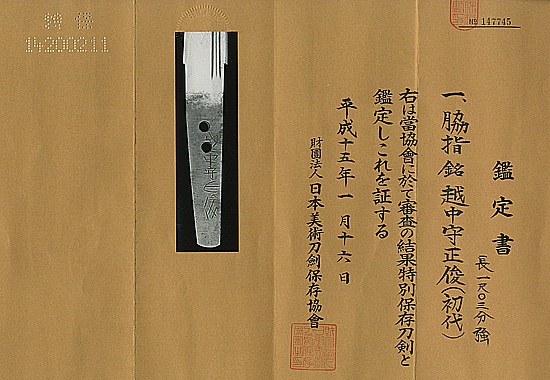 鑑定書
一、脇指 銘 越中守正俊(初代)
長一尺〇三分強
右は當協會に於て審査の結果特別保存刀剣と
鑑定しこれを証する
平成十五年一月十六日
財團法人 日本美術刀劍保存協會
№ 147745
特保
14200211
越中守正俊